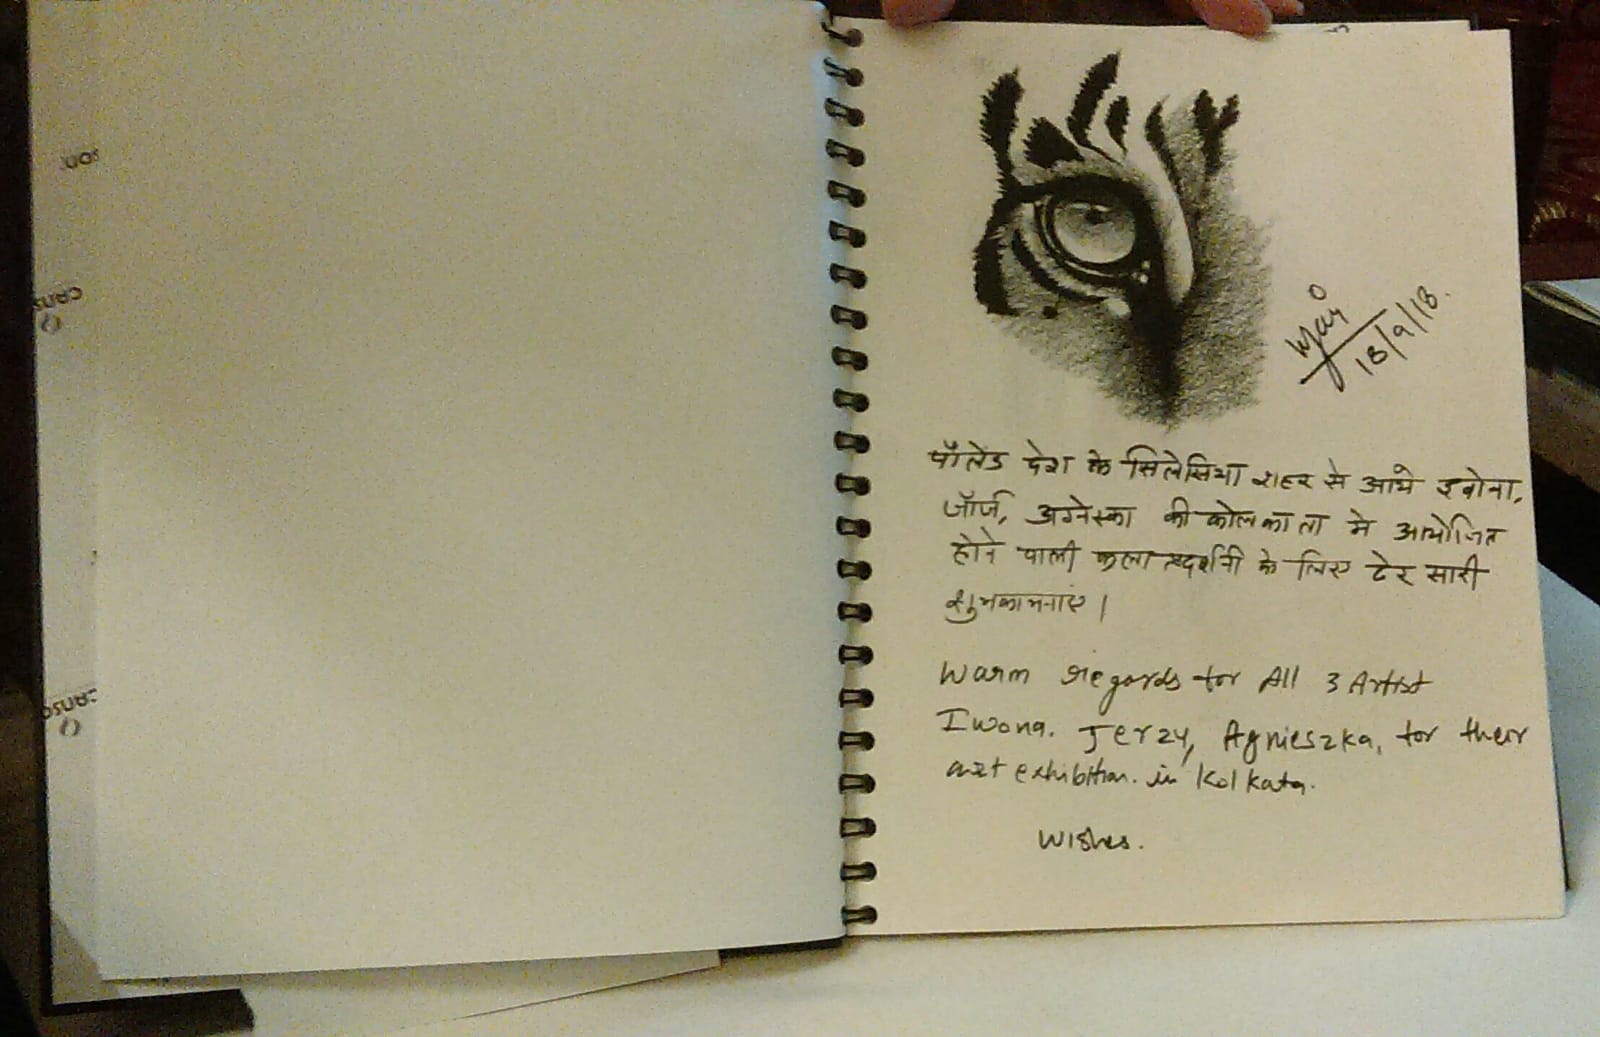 18/9/18.
पॉलेंड देश के सिलेसिया शहर से आये इवोना,
जॉर्ज, अग्नेस्का की कोलकाता मे आयोजित
होने वाली कला प्रदर्शनी के लिए ढेर सारी
शुभकामनाए।
Warm regards for All 3 Artist
Iwona. Jerzy, Agnieszka, for their
art exhibition. in Kolkata.
Wishes.
canson